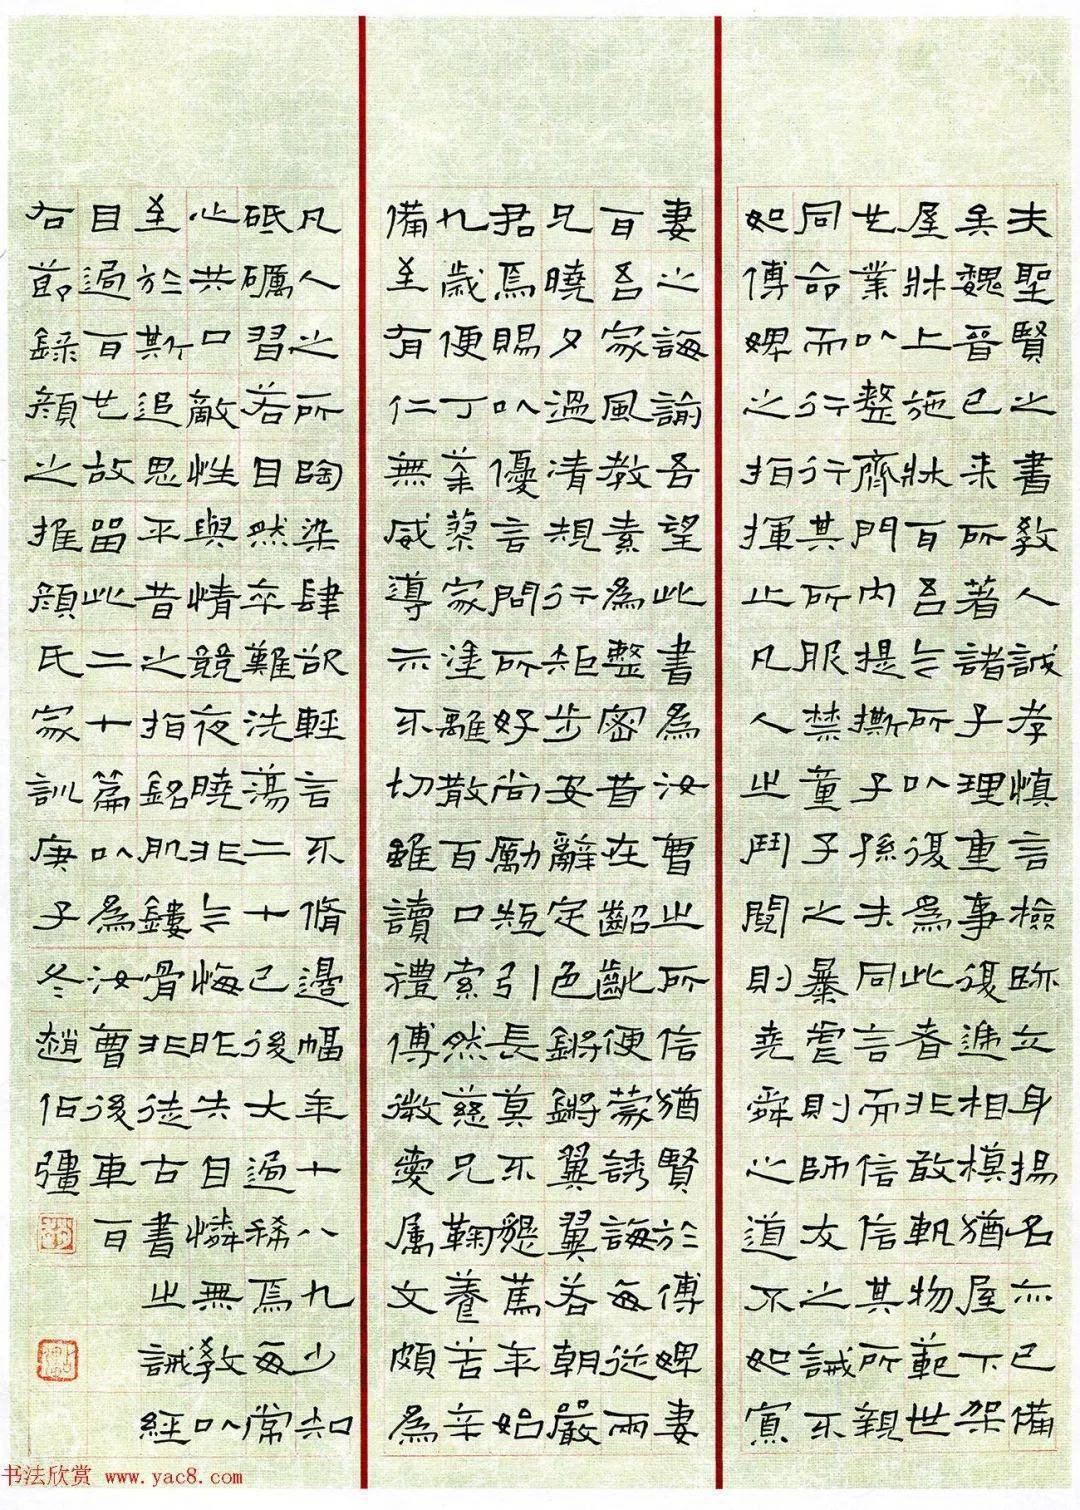 夫聖賢之書教人誠孝慎言檢跡立身揚名亦已備
矣魏晉已來所著諸子理重事復遞相模猶屋下架
屋牀上施牀耳吾今所以復為此者非敢軌物範世
也業以整齊門內提撕子孫夫同言而信信其所親
同命而行行其所服禁童子之暴虐則師友之誡不
如傅婢之指揮止凡人之鬥鬩則堯舜之道不如寡
妻之誨諭吾望此書為汝曹之所信猶賢於傅婢妻
耳吾家風教素為整密昔在齠齔便蒙誘誨每從兩
兄曉夕溫凊規行矩步安辭定色鏘鏘翼翼若朝嚴
君焉賜以優言問所好尚勵短引長莫不懇篤年始
九歲便丁荼蓼家塗離散百口索然慈兄鞠養苦辛
備至有仁無威導示不切雖讀禮傅微愛屬文頗為
凡人之所陶染肆欲輕言不脩邊幅年十八九少知
砥礪習若自然卒難洗蕩二十已後大過稀焉每常
心共口敵性與情競夜曉非今悔昨失自憐無教以
至於斯追思平昔之指銘肌鏤骨非徒古書之誡經
目過耳也故留此二十篇以為汝曹後車耳
右節錄顏之推顏氏家訓庚子冬趙伯彊
书法欣赏 www.yac8.com